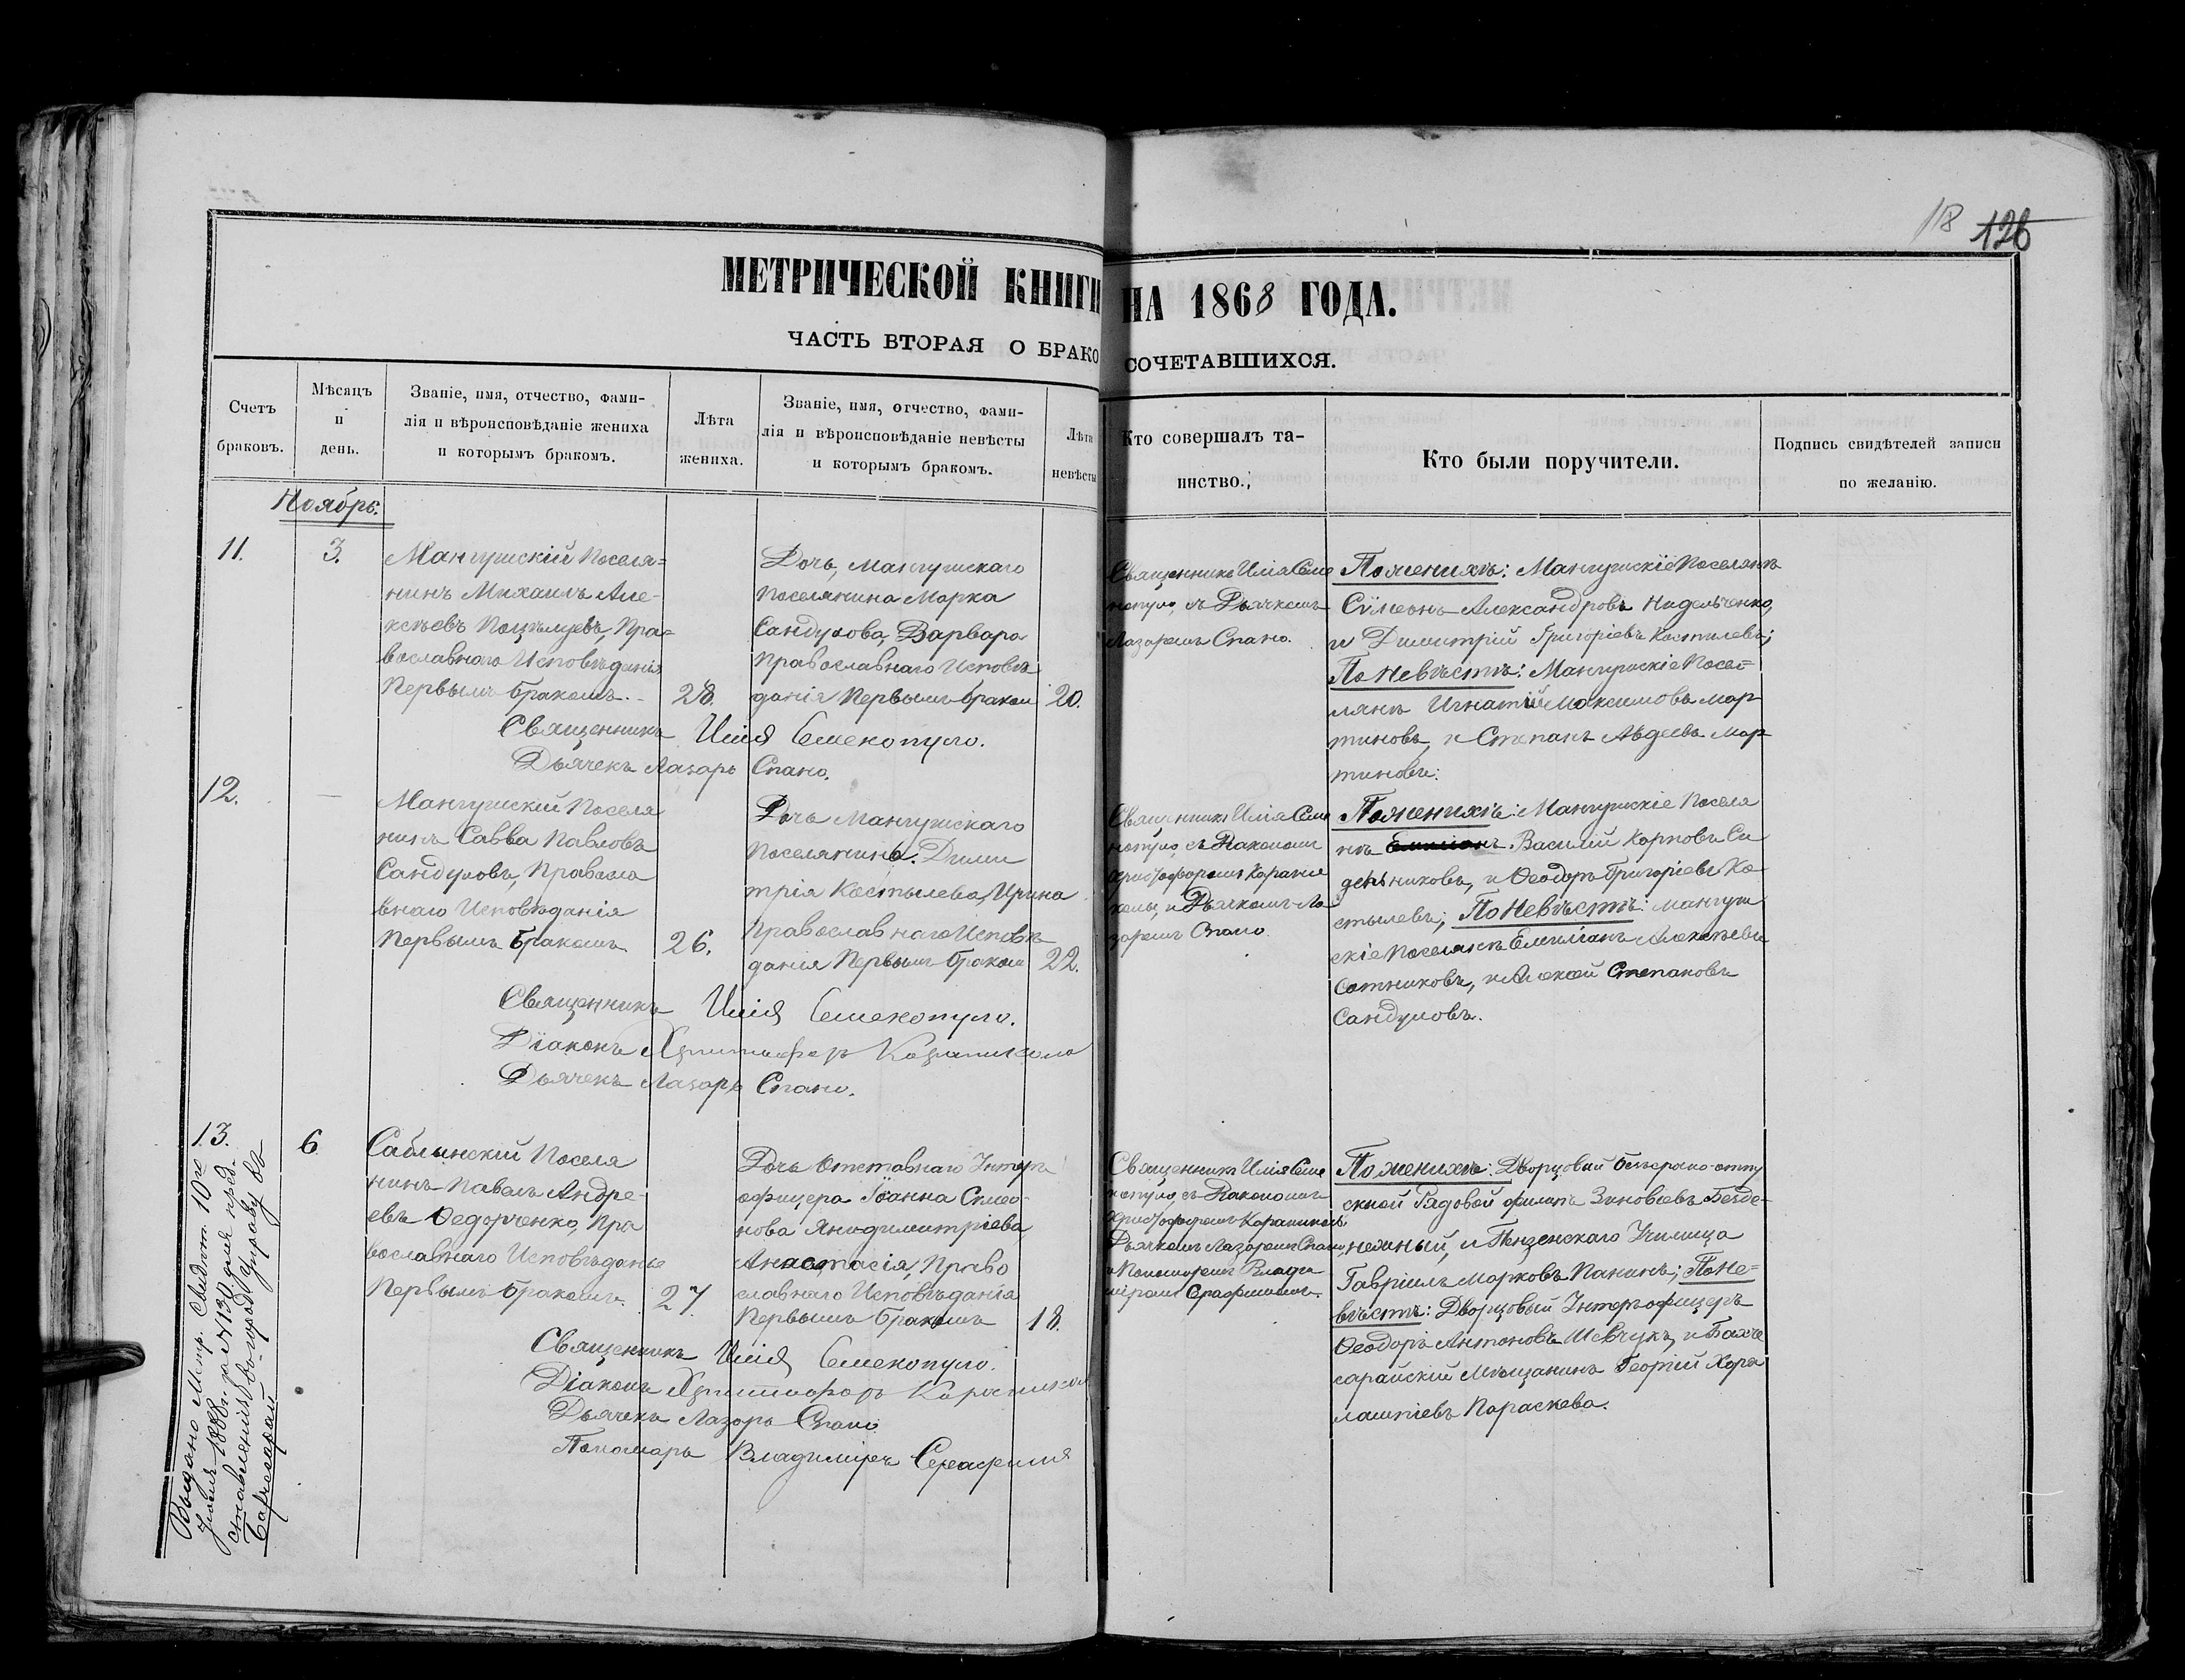 118 126
МЕТРИЧЕСКОЙ КНИГИ НА 1868 ГОДА.
ЧАСТЬ ВТОРАЯ О БРАКОСОЧЕТАВШИХСЯ.
Счетъ браковъ.
Мѣсяцъ и день.
Званіе, имя, отчество, фами-
лія и вѣроисповѣданіе жениха
и которымъ бракомъ.
Лѣта жениха.
Званіе, имя, отчество, фами-
лія и вѣроисповѣданіе невѣсты
и которымъ бракомъ.
Лѣта невѣсты
Кто совершалъ та-
инство.
Кто были поручители.
Подпись свидѣтелей записи
по желанію.
Ноябрь:
11.
3.
Мангушскій Поселя=
нинъ Михаилъ Але-
ксѣевъ Поцѣлуевъ, Пра=
вославнаго Исповѣданія
Первымъ бракомъ.
28.
Дочь, Мангушскаго
Поселянина Марка
Сандулова, Варвара
Православнаго Исповѣ
данія Первымъ браком
20.
Священникъ Илія Семе
нопуло, съ Дьячкомъ
Лазаремъ Спано.
По женихѣ: Мангушскіе Поселянѣ
Сѵмеонъ Александровъ Нидельченко,
и Димитрій Григоріевъ Костилевъ;
По Невѣстѣ: Мангушскіе Посе=
лянѣ Игнатій Максимовъ Мар
тиновъ, и Степанъ Авдеевъ Мар
тиновъ.
Священникъ Илія Семенопуло.
Дьячекъ Лазарь Спано.
12.
—
Мангушскій Поселя
нинъ Савва Павловъ
Сандуловъ, Правосла
внаго Исповѣданія
Первымъ бракомъ
26.
Дочь Мангушскаго
Поселянина Дими
трія Костылева, Ирина
Православнаго Исповѣ
данія Первымъ браком
22.
Священникъ Илія Семе
нопуло, съ Діакономъ
Христофоромъ Карани
колы, и Дьячкомъ Ла
заремъ Спано.
По женихѣ: Мангушскіе Поселя
нѣ Василій Карповъ Си
дельниковъ, и Ѳеодоръ Григоріевъ Ко-
стылевъ; По Невѣстѣ: Мангуш
скіе Поселянѣ Емиліанъ Алексѣевъ
Сотниковъ, и Алексѣй Степановъ
Сандуловъ.
Священникъ Илія Семенопуло.
Діаконъ Христофоръ Караникола
Дьячекъ Лазарь Спано.
13.
6
Саблынскій Поселя
нинъ Павелъ Андре-
евъ Федорченко, Пра
вославнаго Исповѣданіе
Первымъ бракомъ.
27
Дочь Отставнаго Унтеръ
офицера Іоанна Симео-
нова
Анастасія, Право
славнаго Исповѣданія
Первымъ бракомъ
18.
Священникъ Илія Семе
нопуло, съ Діакономъ
Христофоромъ Караниколы
Дьячкомъ Лазаремъ Спано,
и Пономаремъ Влади
міромъ Серафимомъ.
По женихѣ: Дворцовый безсрочно-отпу
скной Рядовой Филипъ Зиновіевъ Безде-
нежный, и Пензенскаго Училища
Гавріилъ Марковъ Панинъ; По Не-
вѣстѣ: Дворцовый Унтеръ-офицеръ
Ѳеодоръ Антоновъ Шевчукъ, и Бахче
сарайскій Мѣщанинъ Георгій Хара
лампіевъ Параскева.
Священникъ Илія Семенопуло.
Діаконъ Христофоръ Караникола
Дьячекъ Лазарь Спано
Пономарь Владиміръ Серафимъ
Выдано Метр. Свидѣт. 10го
Іюля 1888 г. за №130 для пред-
ставленія въ Город. Управу въ
Бахчисарай